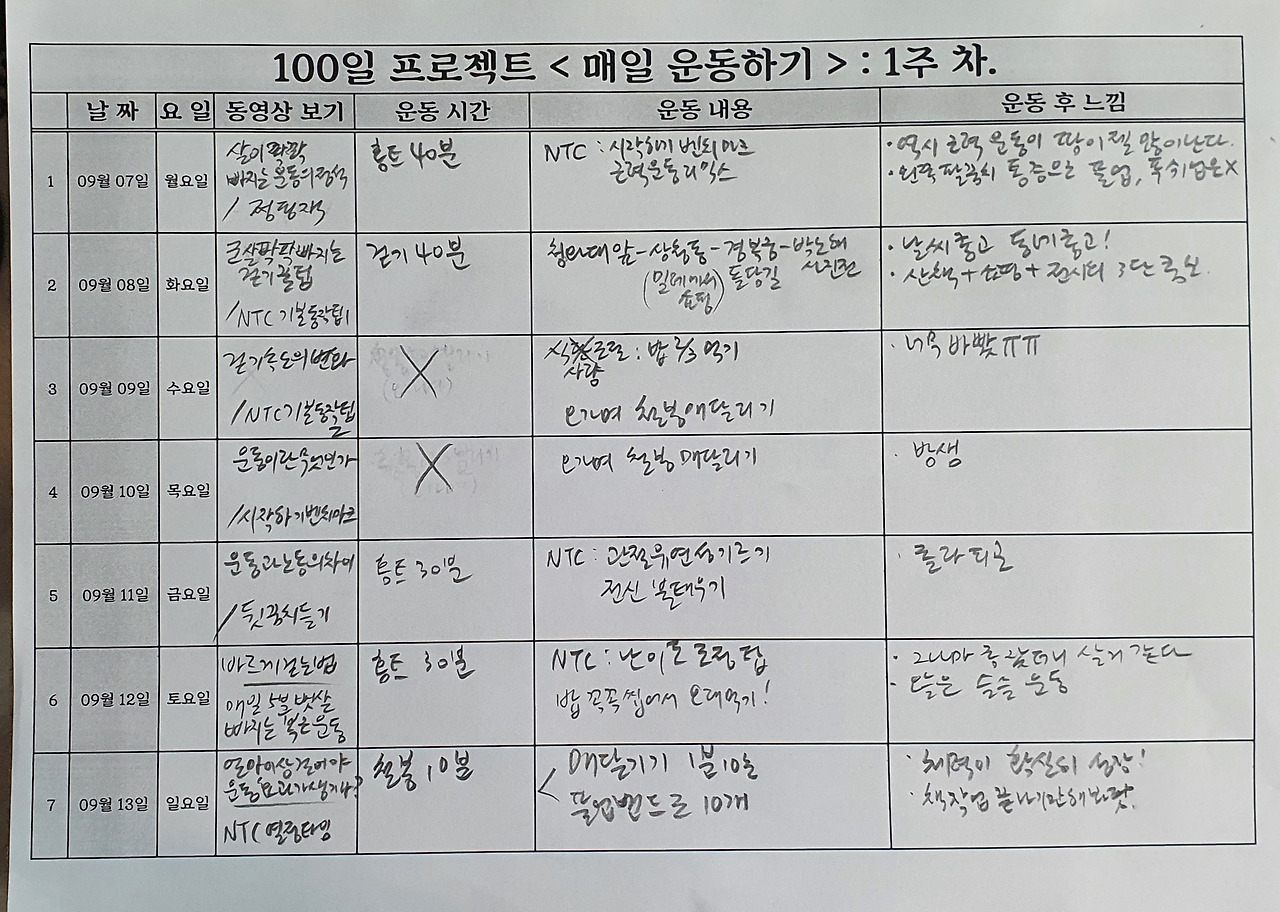 100일 프로젝트 < 매일 운동하기 > : 1주 차.
날 짜 요 일 동영상 보기 운동 시간 운동 내용 운동 후 느낌
1 09월 07일 월요일
살이 팍팍
빠지는 운동의 정석
/ 정필재
홈트 40분
NTC : 시작하기 벤치마크
근력운동 리믹스
· 역시 근력 운동이 땀이 젤 많이난다.
· 왼쪽 팔꿈치 통증으로 풀업, 푸쉬업은 X
2 09월 08일 화요일
군살 팍팍 빠지는
걷기 꿀팁
/NTC 기본동작팁1
걷기 40분
청와대 앞 - 상춘동 - 경복궁 - 박노해
(밀데에서 돌담길 사진전
쇼핑)
· 날씨 좋고 동네 좋고!
· 산책 + 쇼핑 + 전시의 3단 콤보.
3 09월 09일 수요일
걷기속도의 변화
/NTC 기본동작팁
2
X
식사조절 : 밥 2/3 먹기
사량
오가며 철봉에 매달리기
· 너무 바빴ㅠㅠ
4 09월 10일 목요일
운동이란 무엇인가
/시작하기 벤치마크
X
오가며 철봉 매달리기
· 방생
5 09월 11일 금요일
운동과 노동의 차이
/뒷꿈치들기
홈트 30분
NTC : 관절 유연성 기르기
전신 불태우기
· 졸라 피곤
6 09월 12일 토요일
바르게 걷는법
매일 5분 뱃살
빠지는 복근운동
홈트 30분
NTC : 난이도 조정 팁
밥 꼭꼭 씹어서 오래먹기!
· 그나마 좀 잤더니 살거 같다
· 오늘은 슬슬 운동
7 09월 13일 일요일
얼마이상걸어야
운동효과가 생기나?
NTC 열린타임
철봉 10분
매달리기 1분10초
풀업밴드로 10개
· 체력이 확실히 성장!
· 책작업 끝나기만해봐랏.